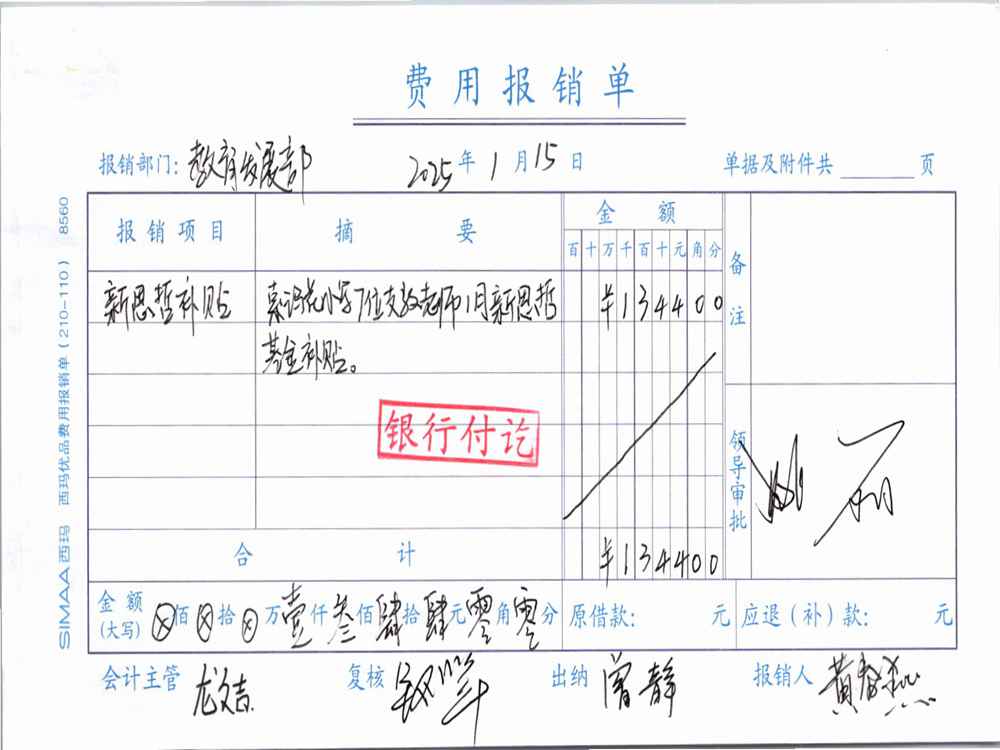 费用报销单
报销部门: 教育发展部 2025年 1月 15日 单据及附件共 页
报销项目 摘要 金额 备注
百十万千百十元角分
新思哲补贴 小学7位支教老师1月新思哲 ¥134400
基金补贴。
银行付讫
领导审批
合计 ¥134400
金额(大写) ⊗佰⊗拾⊗万壹仟叁佰肆拾肆元零角零分 原借款: 元 应退(补)款: 元
会计主管 龙文吉 复核 出纳 曾静 报销人 黄春燕
SIMAA西玛 西玛优品费用报销单(210-110) 8560